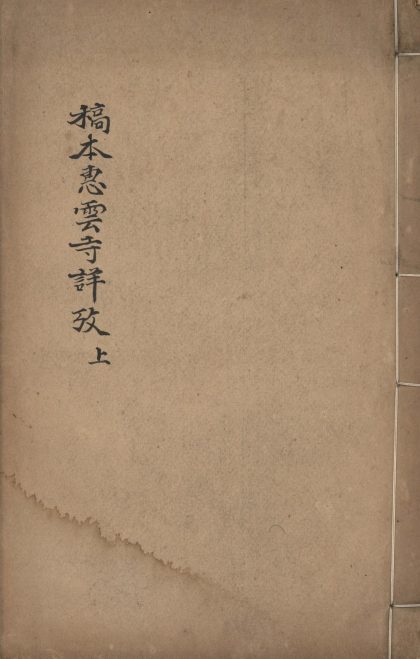 稿本惠雲寺詳攷 上